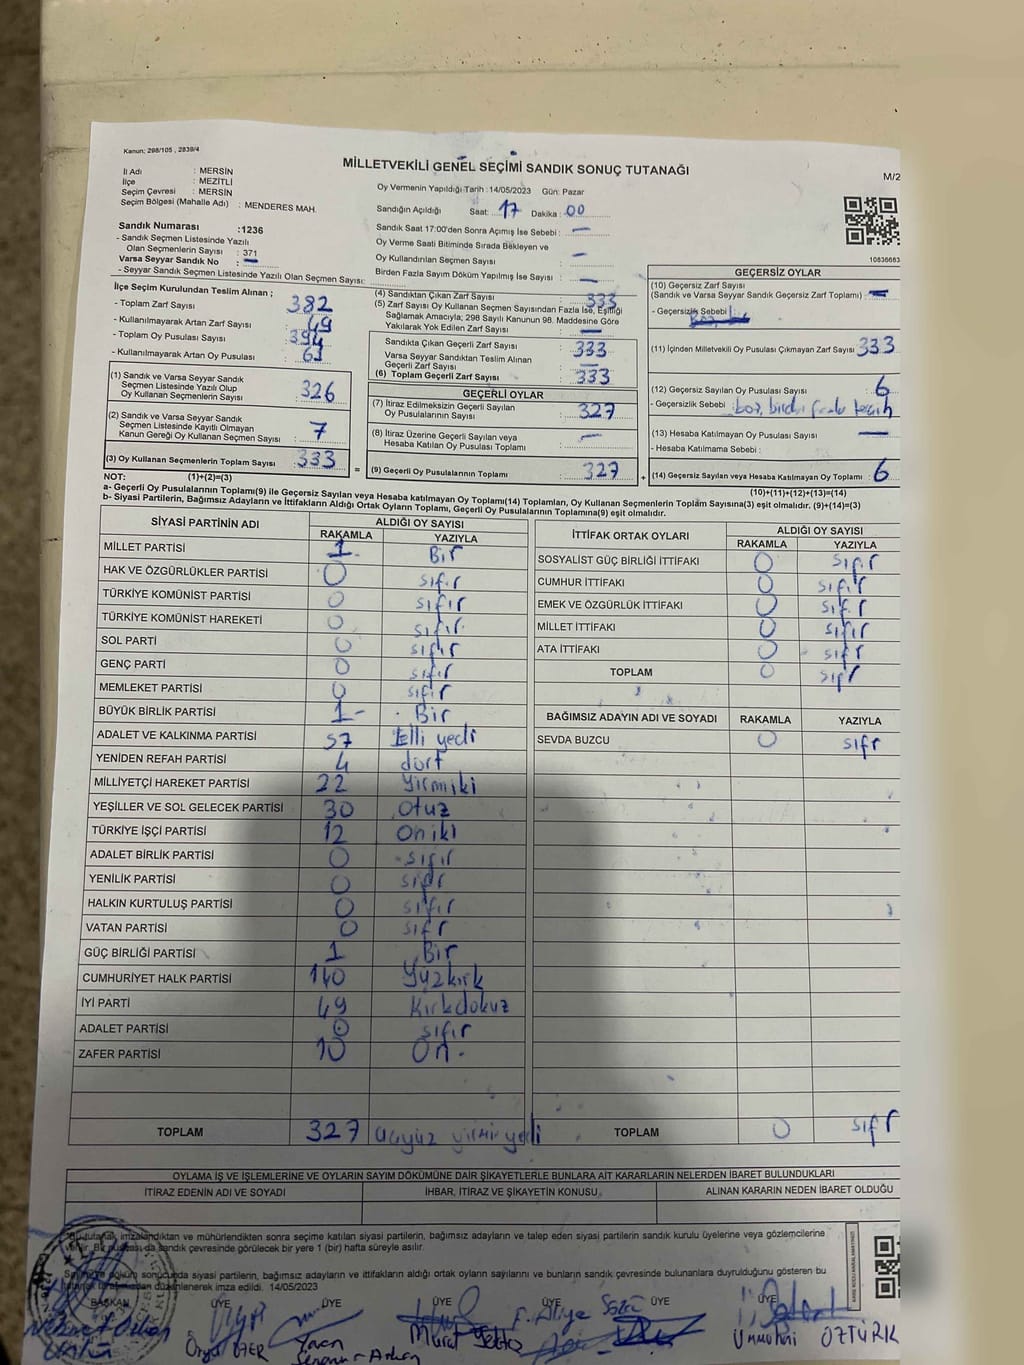 Kanun: 298/105 , 2839/4
MİLLETVEKİLİ GENEL SEÇİMİ SANDIK SONUÇ TUTANAĞI
M/2
İl Adı : MERSİN
İlçe : MEZİTLİ
Seçim Çevresi : MERSİN
Seçim Bölgesi (Mahalle Adı) : MENDERES MAH.
Sandık Numarası :1236
- Sandık Seçmen Listesinde Yazılı
Olan Seçmenlerin Sayısı : 371
Varsa Seyyar Sandık No : —
- Seyyar Sandık Seçmen Listesinde Yazılı Olan Seçmen Sayısı:
Oy Vermenin Yapıldığı Tarih :14/05/2023 Gün: Pazar
Sandığın Açıldığı Saat: 17 Dakika : 00
Sandık Saat 17:00'den Sonra Açımış İse Sebebi : —
Oy Verme Saati Bitiminde Sırada Bekleyen ve
Oy Kullandırılan Seçmen Sayısı : —
Birden Fazla Sayım Döküm Yapılmış İse Sayısı : —
10836683
İlçe Seçim Kurulundan Teslim Alınan ;
- Toplam Zarf Sayısı : 382
- Kullanılmayarak Artan Zarf Sayısı : 49
- Toplam Oy Pusulası Sayısı : 394
- Kullanılmayarak Artan Oy Pusulası : 61
(1) Sandık ve Varsa Seyyar Sandık
Seçmen Listesinde Yazılı Olup
Oy Kullanan Seçmenlerin Sayısı : 326
(2) Sandık ve Varsa Seyyar Sandık
Seçmen Listesinde Kayıtlı Olmayan
Kanun Gereği Oy Kullanan Seçmen Sayısı : 7
(3) Oy Kullanan Seçmenlerin Toplam Sayısı : 333
(4) Sandıktan Çıkan Zarf Sayısı : 333
(5) Zarf Sayısı Oy Kullanan Seçmen Sayısından Fazla İse, Eşitliği
Sağlamak Amacıyla; 298 Sayılı Kanunun 98. Maddesine Göre
Yakılarak Yok Edilen Zarf Sayısı : —
Sandıkta Çıkan Geçerli Zarf Sayısı : 333
Varsa Seyyar Sandıktan Teslim Alınan
Geçerli Zarf Sayısı : —
(6) Toplam Geçerli Zarf Sayısı : 333
GEÇERLİ OYLAR
(7) İtiraz Edilmeksizin Geçerli Sayılan
Oy Pusulalarının Sayısı : 327
(8) İtiraz Üzerine Geçerli Sayılan veya
Hesaba Katılan Oy Pusulası Toplamı : —
= (9) Geçerli Oy Pusulalarının Toplamı : 327 +
GEÇERSİZ OYLAR
(10) Geçersiz Zarf Sayısı
(Sandık ve Varsa Seyyar Sandık Geçersiz Zarf Toplamı) : —
- Geçersizlik Sebebi :
(11) İçinden Milletvekili Oy Pusulası Çıkmayan Zarf Sayısı : 333
(12) Geçersiz Sayılan Oy Pusulası Sayısı : 6
- Geçersizlik Sebebi : boş, birden fazla tercih
(13) Hesaba Katılmayan Oy Pusulası Sayısı : —
- Hesaba Katılmama Sebebi :
(14) Geçersiz Sayılan veya Hesaba Katılmayan Oy Toplamı : 6
NOT: (1)+(2)=(3)
(10)+(11)+(12)+(13)=(14)
a- Geçerli Oy Pusulalarının Toplamı(9) ile Geçersiz Sayılan veya Hesaba katılmayan Oy Toplamı(14) Toplamları, Oy Kullanan Seçmenlerin Toplam Sayısına(3) eşit olmalıdır. (9)+(14)=(3)
b- Siyasi Partilerin, Bağımsız Adayların ve İttifakların Aldığı Ortak Oyların Toplamı, Geçerli Oy Pusulalarının Toplamına(9) eşit olmalıdır.
SİYASİ PARTİNİN ADI ALDIĞI OY SAYISI
RAKAMLA YAZIYLA
MİLLET PARTİSİ 1 Bir
HAK VE ÖZGÜRLÜKLER PARTİSİ 0 sıfır
TÜRKİYE KOMÜNİST PARTİSİ 0 sıfır
TÜRKİYE KOMÜNİST HAREKETİ 0 sıfır
SOL PARTİ 0 sıfır
GENÇ PARTİ 0 sıfır
MEMLEKET PARTİSİ 0 sıfır
BÜYÜK BİRLİK PARTİSİ 1 Bir
ADALET VE KALKINMA PARTİSİ 57 Elli yedi
YENİDEN REFAH PARTİSİ 4 dört
MİLLİYETÇİ HAREKET PARTİSİ 22 Yirmiiki
YEŞİLLER VE SOL GELECEK PARTİSİ 30 Otuz
TÜRKİYE İŞÇİ PARTİSİ 12 Oniki
ADALET BİRLİK PARTİSİ 0 sıfır
YENİLİK PARTİSİ 0 sıfır
HALKIN KURTULUŞ PARTİSİ 0 sıfır
VATAN PARTİSİ 0 sıfır
GÜÇ BİRLİĞİ PARTİSİ 1 Bir
CUMHURİYET HALK PARTİSİ 140 Yüzkırk
İYİ PARTİ 49 Kırkdokuz
ADALET PARTİSİ 0 sıfır
ZAFER PARTİSİ 10 On
TOPLAM 327 üçyüz yirmi yedi
İTTİFAK ORTAK OYLARI ALDIĞI OY SAYISI
RAKAMLA YAZIYLA
SOSYALİST GÜÇ BİRLİĞİ İTTİFAKI 0 sıfır
CUMHUR İTTİFAKI 0 sıfır
EMEK VE ÖZGÜRLÜK İTTİFAKI 0 sıfır
MİLLET İTTİFAKI 0 sıfır
ATA İTTİFAKI 0 sıfır
TOPLAM 0 sıfır
BAĞIMSIZ ADAYIN ADI VE SOYADI RAKAMLA YAZIYLA
SEVDA BUZCU 0 sıfır
TOPLAM 0 sıfır
OYLAMA İŞ VE İŞLEMLERİNE VE OYLARIN SAYIM DÖKÜMÜNE DAİR ŞİKAYETLERLE BUNLARA AİT KARARLARIN NELERDEN İBARET BULUNDUKLARI
İTİRAZ EDENİN ADI VE SOYADI İHBAR, İTİRAZ VE ŞİKAYETİN KONUSU ALINAN KARARIN NEDEN İBARET OLDUĞU
tutanak imzalandıktan ve mühürlendikten sonra seçime katılan siyasi partilerin, bağımsız adayların ve talep eden siyasi partilerin sandık kurulu üyelerine veya gözlemcilerine
verilir. Bir nüshası da sandık çevresinde görülecek bir yere 1 (bir) hafta süreyle asılır.
Sayım ve döküm sonucunda siyasi partilerin, bağımsız adayların ve ittifakların aldığı ortak oyların sayılarını ve bunların sandık çevresinde bulunanlara duyrulduğunu gösteren bu
düzenlenerek imza edildi. 14/05/2023
BAŞKAN ÜYE ÜYE ÜYE ÜYE ÜYE ÜYE
ÖZTÜRK